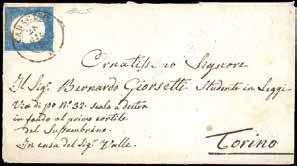 Ornatissimo Signore
Il Sig.r Bernardo Giorsetti Studente in Leggi
Via di po N° 32. scala a destra
in fondo al primo cortile
del
In casa del Sig.r Valle.
Torino